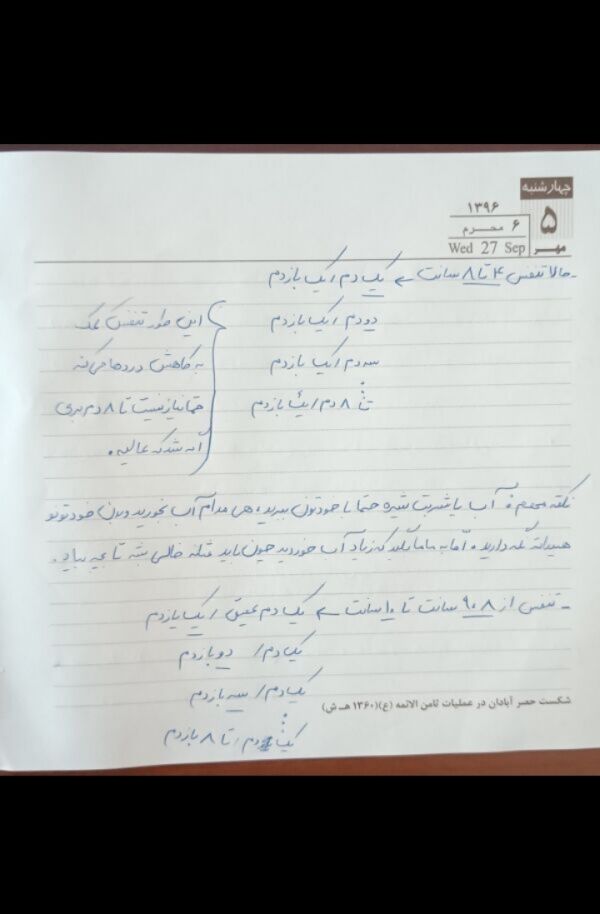 چهارشنبه
۵
مهر
۱۳۹۶
۶ محرم
Wed 27 Sep
- حالا تنفس ۴ تا ۸ سانت ← یک دم / یک بازدم
دو دم / یک بازدم
سه دم / یک بازدم
تا ۸ دم / یک بازدم
این طور تنفس کمک
به کاهش دردها می‌کنه
حتما نیاز نیست تا ۸ دم بری
اگه شد که عالیه.
نکته مهم: آب یا شربت شیره حتما با خودتون ببرید، هی مدام آب بخورید و بدن خودتونو
هیدراته نگه دارید. اما به ماما بگید که زیاد آب خوردید چون باید مثانه خالی بشه تا بچه بیاد.
- تنفس از ۸ و ۹ سانت تا ۱۰ سانت ← یک دم عمیق / یک بازدم
یک دم / دو بازدم
یک دم / سه بازدم
یک دم / تا ۸ بازدم
شکست حصر آبادان در عملیات ثامن الائمه (ع)(۱۳۶۰ هـ ش)